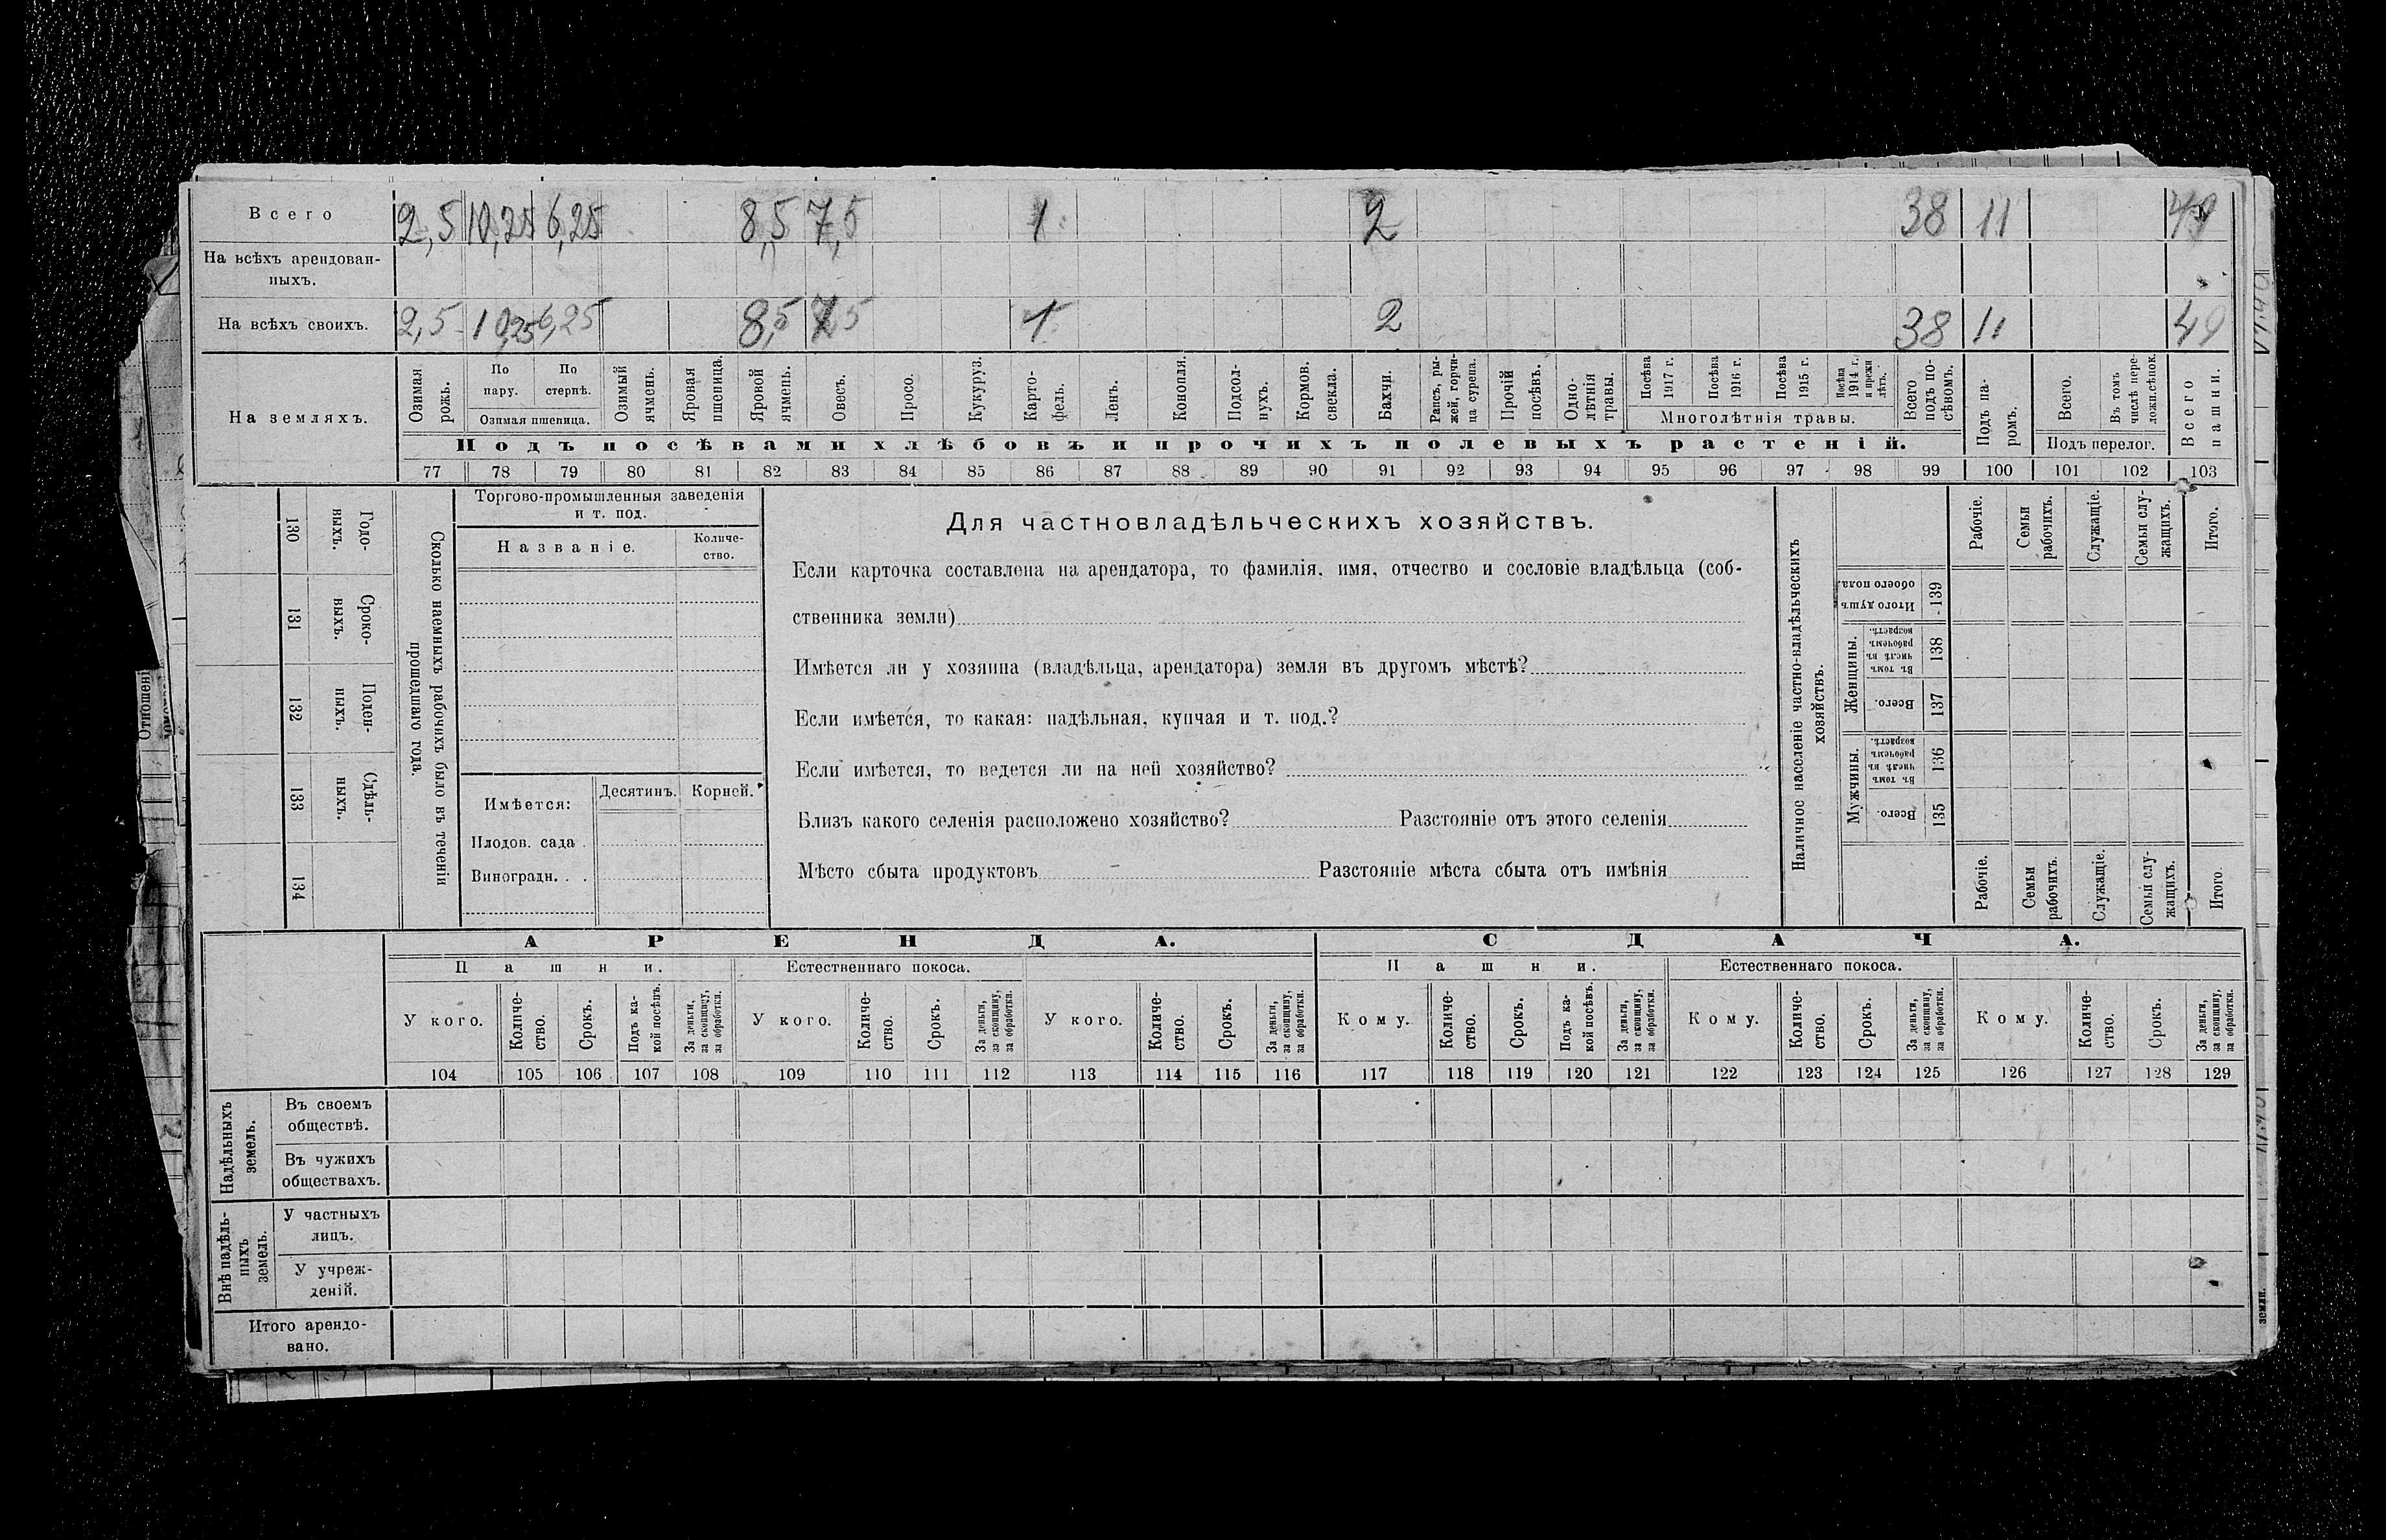 Всего 2,5 10,25 6,25 8,5 7,5 1 2 38 11 49
На всѣхъ арендован-
ныхъ.
На всѣхъ своихъ. 2,5 10,25 6,25 8,5 7,5 1 2 38 11 49
На земляхъ.
Озимая рожь.
По пару.
По стернѣ.
Озимая пшеница.
Озимый ячмень.
Яровая пшеница.
Яровой ячмень.
Овесъ.
Просо.
Кукуруз.
Карто-
фель.
Ленъ.
Конопля.
Подсол-
нухъ.
Кормов.
свекла.
Бахчи.
Рапсъ, ры-
жей, горчи-
ца сурепа.
Прочій
посѣвъ.
Одно-
лѣтнія
травы.
Посѣва
1917 г.
Посѣва
1916 г.
Посѣва
1915 г.
Посѣва
1914 г.
и прежн
лѣтъ.
Многолѣтнія травы.
Всего
подъ по-
сѣвомъ.
Подъ па-
ромъ.
Всего.
Въ томъ
числѣ пере-
ложн.сѣнок.
Подъ перелог.
Всего
пашни.
Подъ посѣвами хлѣбовъ и прочихъ полевыхъ растеній.
77 78 79 80 81 82 83 84 85 86 87 88 89 90 91 92 93 94 95 96 97 98 99 100 101 102 103
Годо-
выхъ.
130
Сроко-
выхъ.
131
Поден-
ныхъ.
132
Сдѣль-
ныхъ.
133
134
Сколько наемныхъ рабочихъ было въ теченіи
прошедшаго года.
Торгово-промышленныя заведенія
и т. под.
Названіе.
Количе-
ство.
Имѣется:
Десятинъ.
Корней.
Плодов. сада .
Виноградн. . .
Для частновладѣльческихъ хозяйствъ.
Если карточка составлена на арендатора, то фамилія, имя, отчество и сословіе владѣльца (соб-
ственника земли)
Имѣется ли у хозяина (владѣльца, арендатора) земля въ другомъ мѣстѣ?
Если имѣется, то какая: надѣльная, купчая и т. под.?
Если имѣется, то ведется ли на ней хозяйство?
Близъ какого селенія расположено хозяйство? Разстояніе отъ этого селенія
Мѣсто сбыта продуктовъ Разстояніе мѣста сбыта отъ имѣнія
Наличное населеніе частно-владѣльческихъ
хозяйствъ.
Рабочіе.
Семьи
рабочихъ.
Служащіе.
Семьи слу-
жащихъ.
Итого.
Итого душъ
обоего пола.
139
Женщины.
Въ томъ
числѣ въ
рабочемъ
возрастѣ.
138
Всего.
137
Мужчины.
Въ томъ
числѣ въ
рабочемъ
возрастѣ.
136
Всего.
135
Рабочіе.
Семьи
рабочихъ.
Служащіе.
Семьи слу-
жащихъ.
Итого.
АРЕНДА.
СДАЧА.
Пашни.
Естественнаго покоса.
Пашни.
Естественнаго покоса.
У кого.
Количе-
ство.
Срокъ.
Подъ ка-
кой посѣвъ.
За деньги,
за скопщину,
за обработки.
У кого.
Количе-
ство.
Срокъ.
За деньги,
за скопщину,
за обработки.
У кого.
Количе-
ство.
Срокъ.
За деньги,
за скопщину,
за обработки.
Кому.
Количе-
ство.
Срокъ.
Подъ ка-
кой посѣвъ.
За деньги,
за скопщину,
за обработки.
Кому.
Количе-
ство.
Срокъ.
За деньги,
за скопщину,
за обработки.
Кому.
Количе-
ство.
Срокъ.
За деньги,
за скопщину,
за обработки.
104 105 106 107 108 109 110 111 112 113 114 115 116 117 118 119 120 121 122 123 124 125 126 127 128 129
Надѣльныхъ
земель.
Въ своемъ
обществѣ.
Въ чужихъ
обществахъ.
Внѣ надѣль-
ныхъ
земель.
У частныхъ
лицъ.
У учреж-
деній.
Итого арендо-
вано.
Отношені
земли.